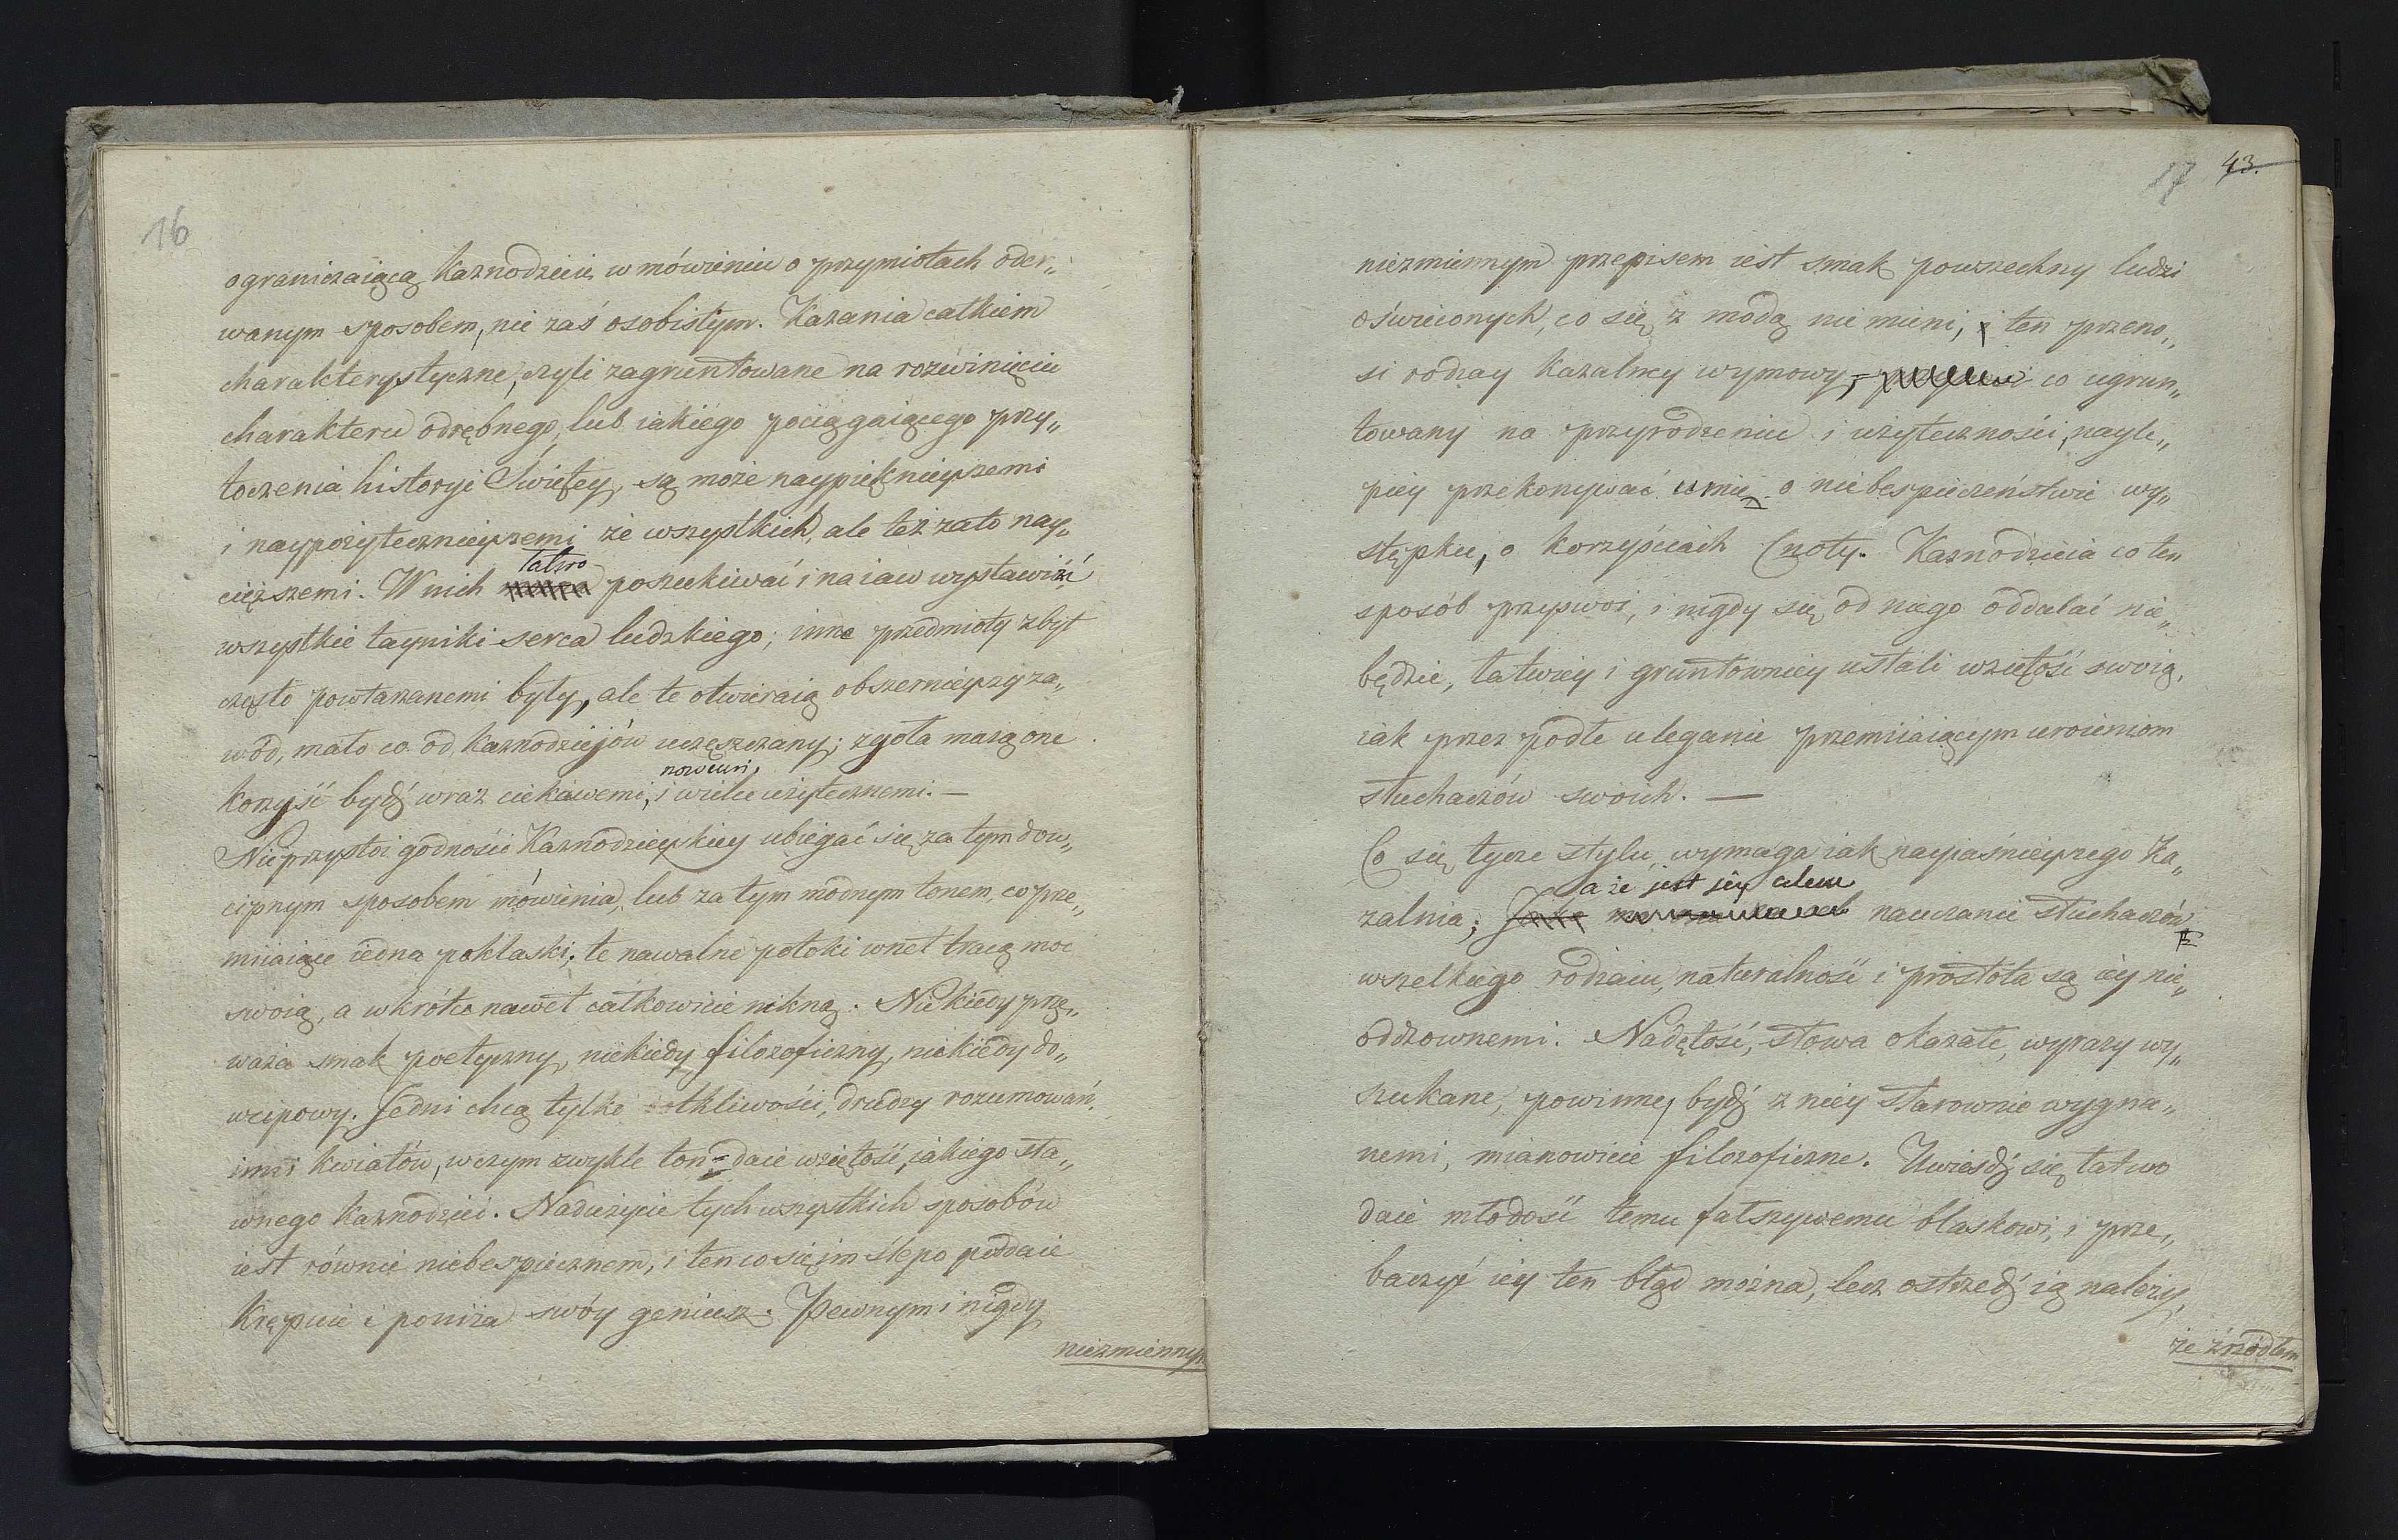 16
ograniczaiącą Kaznodzieie w mówieniu o przymiotach oder„
wanym sposobem, nie zaś osobistym. Kazania całkiem
charakterystyczne, czyli zagruntowane na rozwinięciu
charakteru odrębnego, lub iakiego pociągaiącego przy„
toczenia historyi Świętey, są może naypięknieyszemi
i naypożytecznieyszemi ze wszystkich, ale też zato nay„
łatwo
cięższemi. W nich poszukiwać i na iaw wystawić
wszystkie tayniki serca ludzkiego; inne przedmioty zbyt
często powtarzanemi były, ale te otwieraią obszernieyszy za„
wód, mało co od Kaznodziejów uczęszczany; zgoła maią one
nowemi,
korzyść bydź wraz ciekawemi, i wielce użytecznemi. —
Nieprzystoi godności Kaznodzieyskiey ubiegać się za tym dow„
cipnym sposobem mówienia, lub za tym modnym tonem, co prze„
miiaiące iedna poklaski; te nawalne potoki wnet tracą moc
swoią, a wkrótce nawet całkowicie nikną. Niekiedy prze„
waża smak poetyczny, niekiedy filozoficzny, niekiedy do„
wcipowy. Jedni chcą tylko tkliwości, drudzy rozumowań,
inni kwiatów, w czym zwykle ton daie wziętość iakiego sła„
wnego Kaznodziei. Nadużycie tych wszystkich sposobów
iest równie niebespiecznem, i ten co się im ślepo poddaie
krępuie i poniża swóy geniusz. Pewnym i nigdy
niezmiennym
17 43.
niezmiennym przepisem iest smak powszechny ludzi
oświeconych, co się z modą nie mieni, i ten przeno„
si rodzay kazalney wymowy, co ugrun„
towany na przyrodzeniu i użyteczności, nayle„
piey przekonywać umie o niebespieczeństwie wy„
stępku, o korzyściach Cnoty. Kaznodzieia co ten
sposób przyswoi, i nigdy się od niego oddalać nie„
będzie, łatwiey i gruntowniey ustali wziętość swoią,
iak przez podłe uleganie przemiiaiącym uroieniom
słuchaczów swoich. —
Co się tycze stylu, wymaga iak nayiaśnieyszego Ka„
a że jest jey celem
zalnia; nauczanie słuchaczów
wszelkiego rodzaiu, naturalność i prostota są iey nie„
odzownemi. Nadętość, słowa okazałe, wyrazy wy„
szukane, powinny bydź z niey starownie wygna„
nemi, mianowicie filozoficzne. Uwieśdź się łatwo
daie młodość temu fałszywemu blaskowi, i prze„
baczyć iey ten błąd można, lecz ostrzedź ią należy,
że źródłem